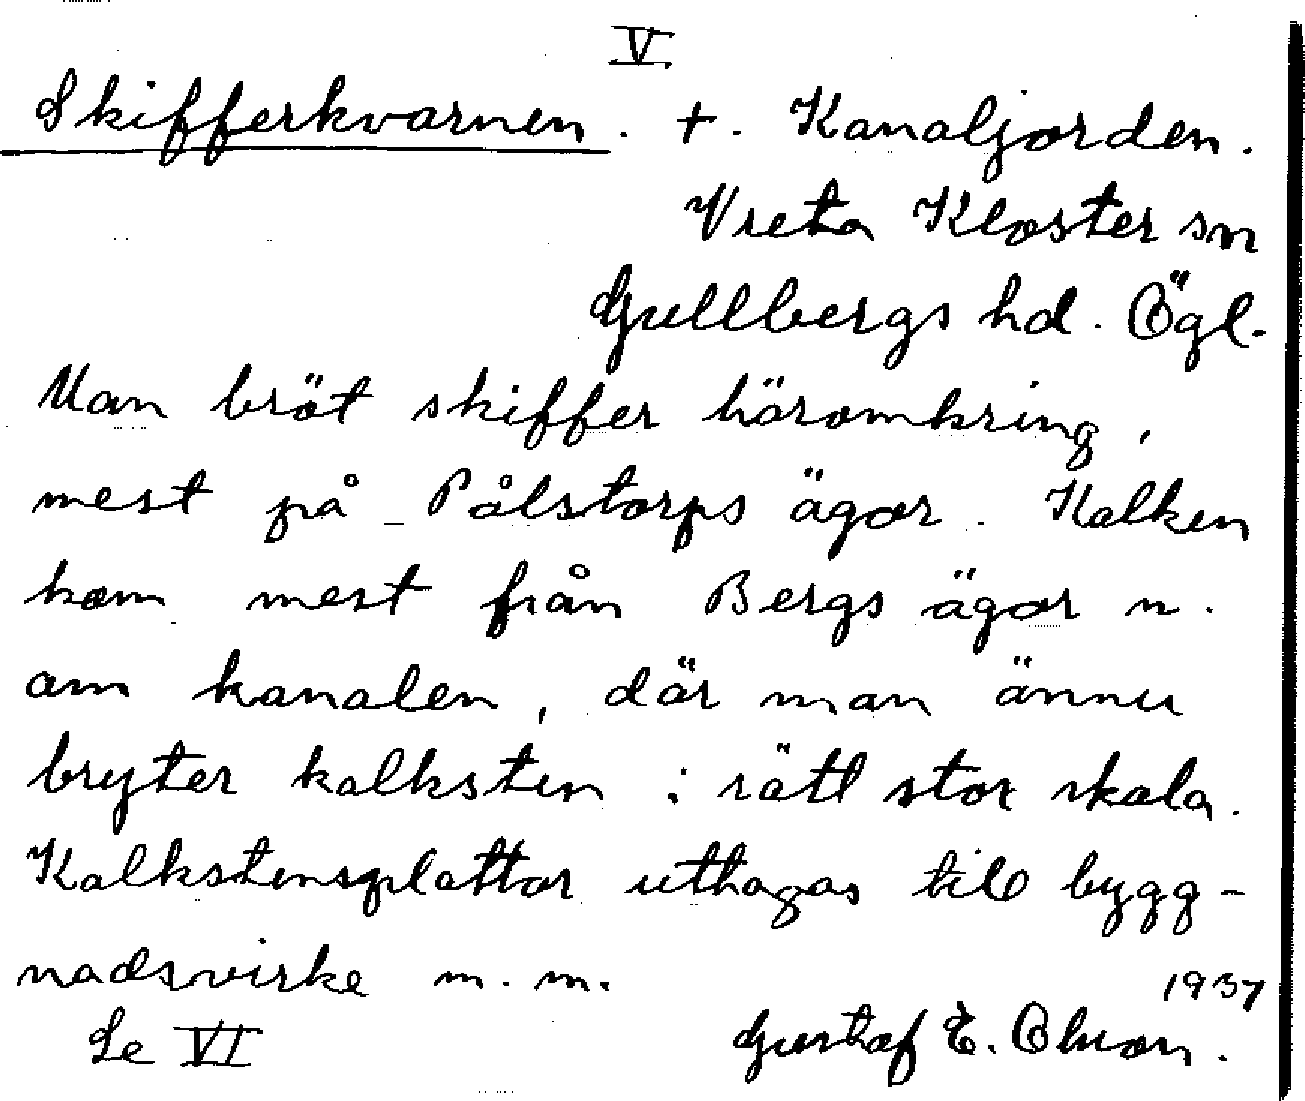 V.
Skifferkvarnen. +. Kanaljorden.
Vreta Kloster sn
Gullbergs hd. Ögl.
Man bröt skiffer häromkring,
mest på Pålstorps ägor. Kalken
kom mest från Bergs ägor n.
om kanalen, där man ännu
bryter kalksten i rätt stor skala.
Kalkstensplattor uttagas till bygg-
nadsvirke m. m.
1937
Se VI Gustaf E. Olsson.